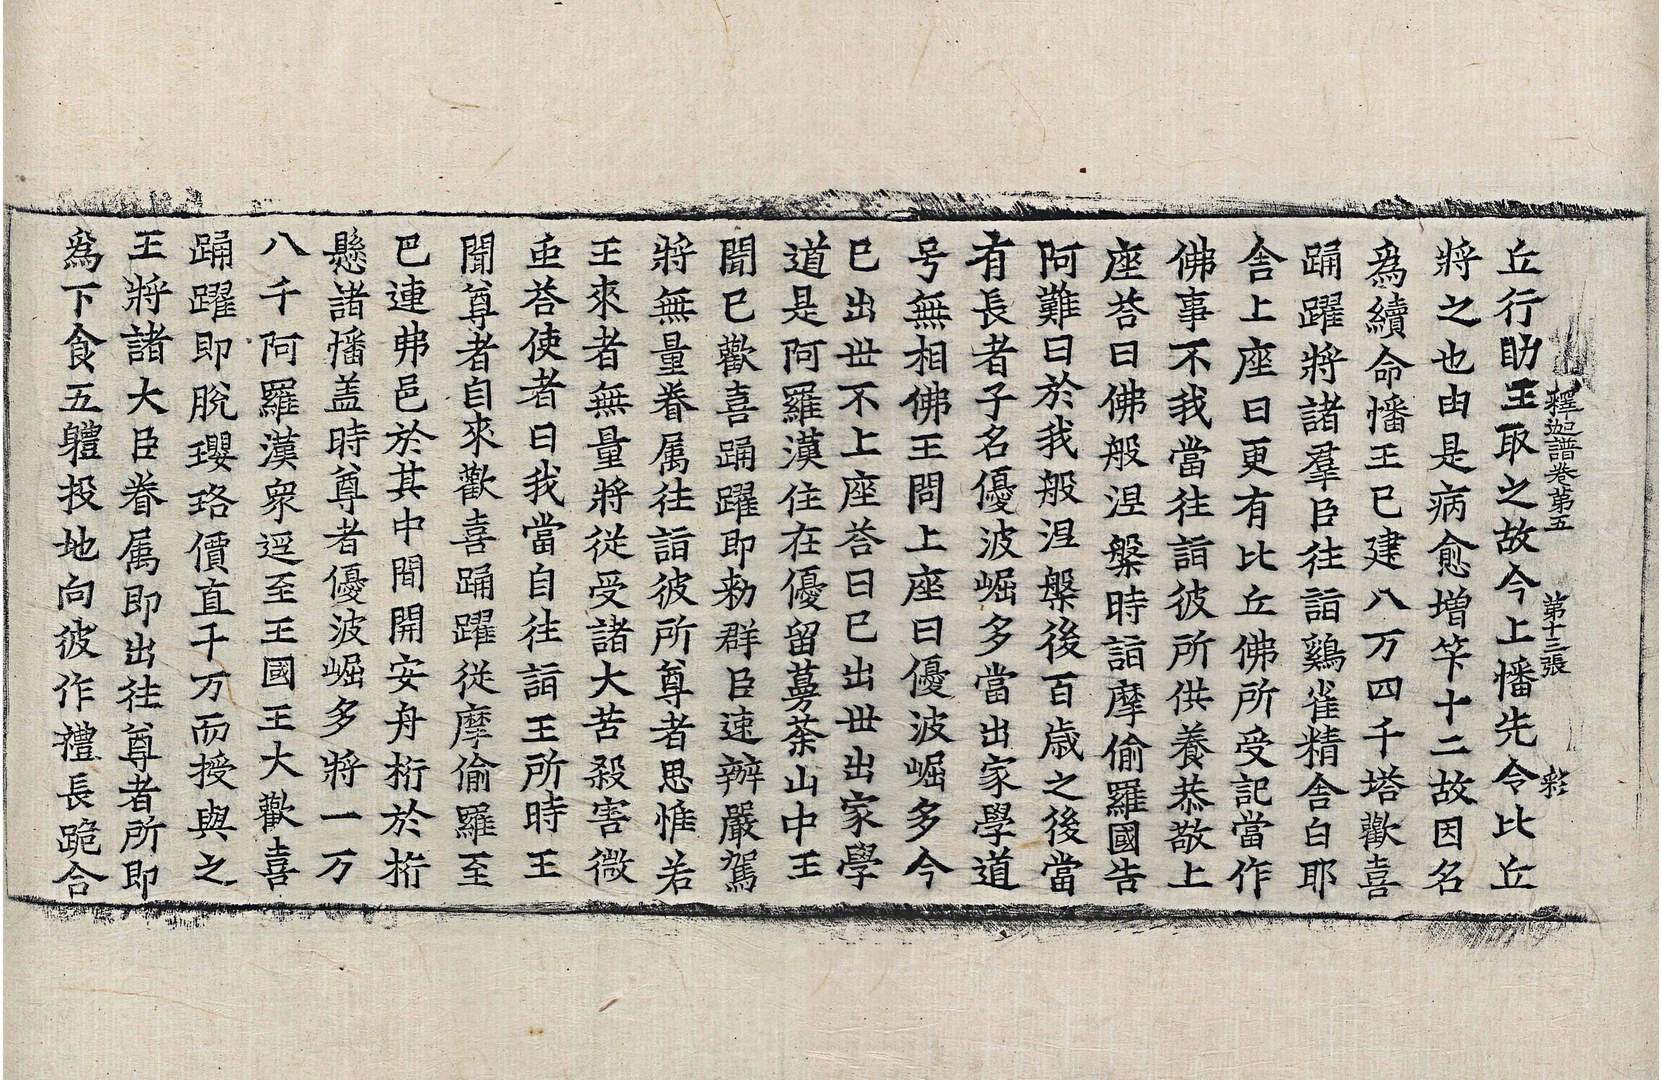 釋迦譜卷第五　第十三張　彩
丘行助王取之故今上幡先令比丘
將之也由是病愈增筭十二故因名
為續命幡王已建八万四千塔歡喜
踊躍將諸羣臣往詣鷄雀精舍白耶
舍上座曰更有比丘佛所受記當作
佛事不我當往詣彼所供養恭敬上
座荅曰佛般涅槃時詣摩偷羅國告
阿難曰於我般涅槃後百歲之後當
有長者子名優波崛多當出家學道
号無相佛王問上座曰優波崛多今
已出世不上座荅曰已出世出家學
道是阿羅漢住在優留蔓荼山中王
聞已歡喜踊躍即勑群臣速辦嚴駕
將無量眷属往詣彼所尊者思惟若
王來者無量將従受諸大苦殺害微
虫荅使者曰我當自往詣王所時王
聞尊者自來歡喜踊躍従摩偷羅至
巴連弗邑於其中間開安舟桁於桁
懸諸幡盖時尊者優波崛多將一万
八千阿羅漢衆逕至王國王大歡喜
踊躍即脫瓔珞價直千万而授與之
王將諸大臣眷属即出往尊者所即
為下食五體投地向彼作禮長跪合